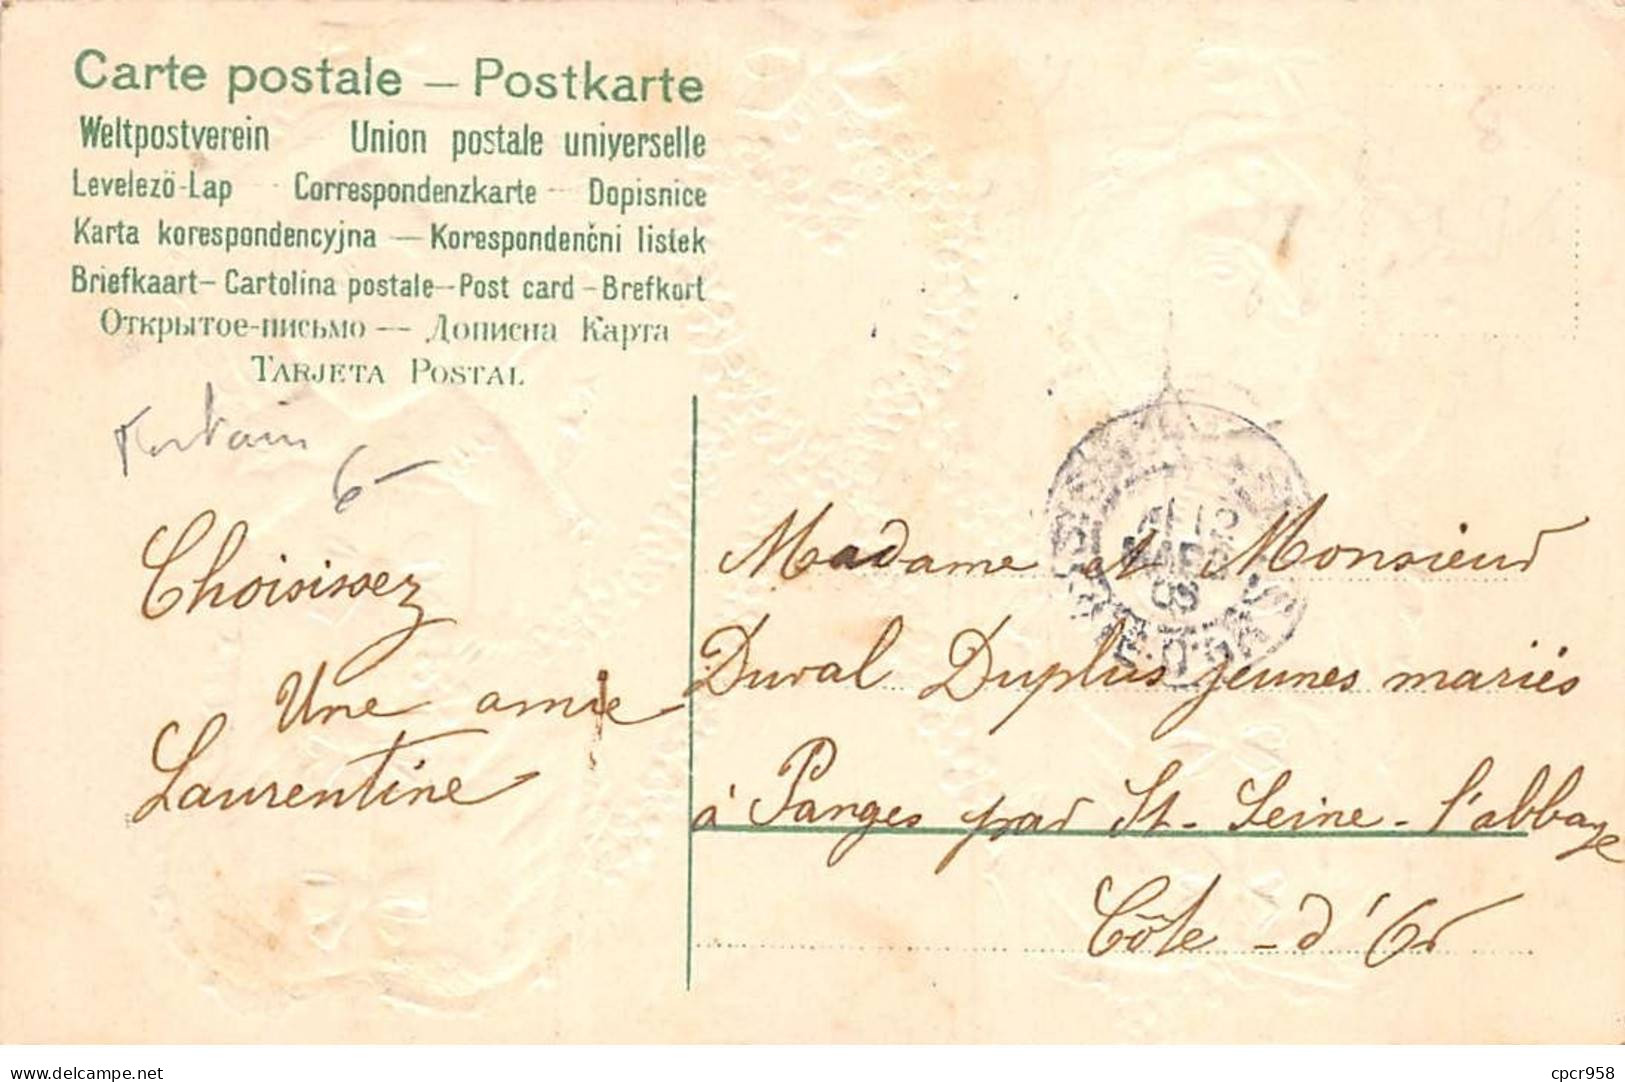 Carte postale — Postkarte
Weltpostverein Union postale universelle
Levelező-Lap - Correspondenzkarte - Dopisnice
Karta korespondencyjna — Korespondenčni listek
Briefkaart - Cartolina postale - Post card - Brefkort
Открытое-письмо — Дописна Карта
TARJETA POSTAL
6-
Choisissez
Une amie
Laurentine
Madame et Monsieur
Duval Duplus jeunes mariés
à Panges par St-Seine-l'abbaye
Côte-d'Or
MARS
08
delcampe.net
cpcr958